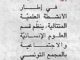 في إطار
الأنشطة العلمية
المتتالية، ينظم قسم
العلوم الإنسانية
والاجتماعية
بالمجمع التونسي